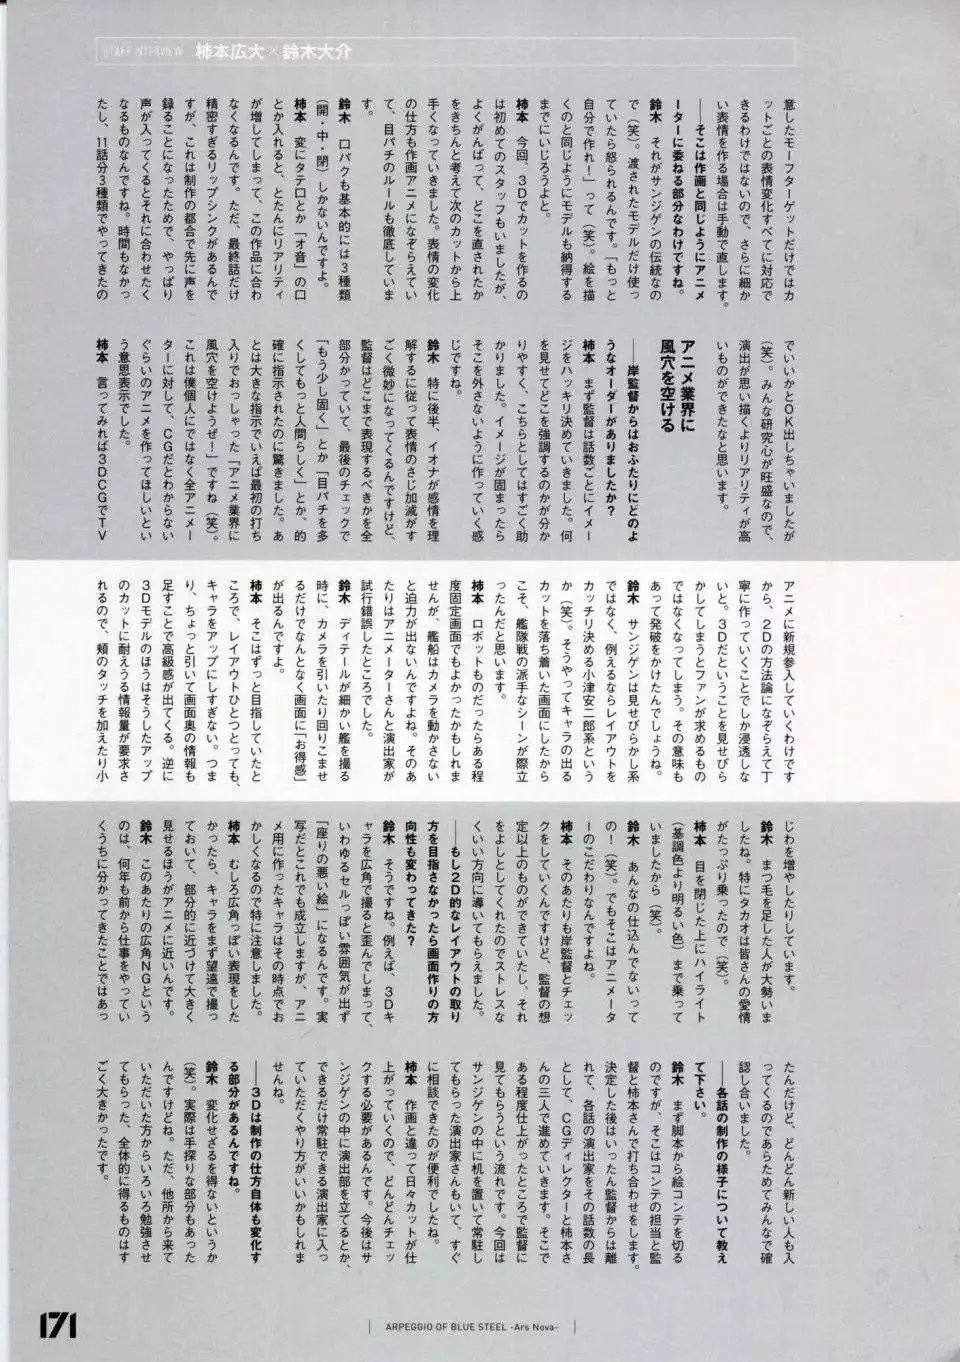 STAFF INTERVIEW 柿本広大×鈴木大介
意したモーフターゲットだけではカ
ットごとの表情変化すべてに対応で
きるわけではないので、さらに細か
い表情を作る場合は手動で直します。
――そこは作画と同じようにアニメ
ーターに委ねる部分なわけですね。
鈴木 それがサンジゲンの伝統なの
で(笑)。渡されたモデルだけ使っ
ていたら怒られるんです。「もっと
自分で作れ!」って(笑)。絵を描
くのと同じようにモデルも納得する
までにいじろうよと。
柿本 今回、3Dでカットを作るの
は初めてのスタッフもいましたが、
よくがんばって、どこを直されたか
をきちんと考えて次のカットから上
手くなっていきました。表情の変化
の仕方も作画アニメになぞらえてい
て、目パチのルールも徹底していま
す。
鈴木 口パクも基本的には3種類
(開・中・閉)しかないんですよ。
柿本 変にタテ口とか「オ音」の口
とか入れると、とたんにリアリティ
が増してしまって、この作品に合わ
なくなるんです。ただ、最終話だけ
精密すぎるリップシンクがあるんで
すが、これは制作の都合で先に声を
録ることになったためで、やっぱり
声が入ってくるとそれに合わせたく
なるものなんですね。時間もなかっ
たし、11話分3種類でやってきたの
でいいかとOK出しちゃいましたが
(笑)。みんな研究心が旺盛なので、
演出が思い描くよりリアリティが高
いものができたなと思います。
アニメ業界に
風穴を空ける
――岸監督からはおふたりにどのよ
うなオーダーがありましたか?
柿本 まず監督は話数ごとにイメー
ジをハッキリ決めていきました。何
を見せてどこを強調するのかが分か
りやすく、こちらとしてはすごく助
かりました。イメージが固まったら
そこを外さないように作っていく感
じですね。
鈴木 特に後半、イオナが感情を理
解するに従って表情のさじ加減がす
ごく微妙になってくるんですけど、
監督はどこまで表現するべきかを全
部分かっていて、最後のチェックで
「もう少し固く」とか「目パチを多
くしてもっと人間らしく」とか、的
確に指示されたのに驚きました。あ
とは大きな指示でいえば最初の打ち
入りでおっしゃった「アニメ業界に
風穴を空けようぜ!」ですね(笑)。
これは僕個人にではなく全アニメー
ターに対して、CGだとわからない
ぐらいのアニメを作ってほしいとい
う意思表示でした。
柿本 言ってみれば3DCGでTV
アニメに新規参入していくわけです
から、2Dの方法論になぞらえて丁
寧に作っていくことでしか浸透しな
いと。3Dだということを見せびら
かしてしまうとファンが求めるもの
ではなくなってしまう。その意味も
あって発破をかけたんでしょうね。
鈴木 サンジゲンは見せびらかし系
ではなく、例えるならレイアウトを
カッチリ決める小津安二郎系という
か(笑)。そうやってキャラの出る
カットを落ち着いた画面にしたから
こそ、艦隊戦の派手なシーンが際立
ったんだと思います。
柿本 ロボットものだったらある程
度固定画面でもよかったかもしれま
せんが、艦船はカメラを動かさない
と迫力が出ないんですよね。そのあ
たりはアニメーターさんと演出家が
試行錯誤したところでした。
鈴木 ディテールが細かい艦を撮る
時に、カメラを引いたり回りこませ
るだけでなんとなく画面に「お得感」
が出るんですよ。
柿本 そこはずっと目指していたと
ころで、レイアウトひとつとっても、
キャラをアップにしすぎない。つま
り、ちょっと引いて画面奥の情報も
足すことで高級感が出てくる。逆に
3Dモデルのほうはそうしたアップ
のカットに耐えうる情報量が要求さ
れるので、頬のタッチを加えたり小
じわを増やしたりしています。
鈴木 まつ毛を足した人が大勢いま
したね。特にタカオは皆さんの愛情
がたっぷり乗ったので(笑)。
柿本 目を閉じた上にハイライト
(基調色より明るい色)まで乗って
いましたから(笑)。
鈴木 あんなの仕込んでないって
の!(笑)。でもそこはアニメータ
ーのこだわりなんですよね。
柿本 そのあたりも岸監督とチェッ
クをしていくんですけど、監督の想
定以上のものができていたし、それ
をよしとしてくれたのでストレスな
くいい方向に導いてもらえました。
――もし2D的なレイアウトの取り
方を目指さなかったら画面作りの方
向性も変わってきた?
鈴木 そうですね。例えば、3Dキ
ャラを広角で撮ると歪んでしまって、
いわゆるセルっぽい雰囲気が出ず
「座りの悪い絵」になるんです。実
写だとこれでも成立しますが、アニ
メ用に作ったキャラはその時点でお
かしくなるので特に注意しました。
柿本 むしろ広角っぽい表現をした
かったら、キャラをまず望遠で撮っ
ておいて、部分的に近づけて大きく
見せるほうがアニメに近いんです。
鈴木 このあたりの広角NGという
のは、何年も前から仕事をやってい
くうちに分かってきたことではあっ
たんだけど、どんどん新しい人も入
ってくるのであらためてみんなで確
認し合いました。
――各話の制作の様子について教え
て下さい。
鈴木 まず脚本から絵コンテを切る
のですが、そこはコンテの担当と監
督と柿本さんで打ち合わせをします。
決定した後はいったん監督からは離
れて、各話の演出家をその話数の長
として、CGディレクターと柿本さ
んの三人で進めていきます。そこで
ある程度仕上がったところで監督に
見てもらうという流れです。今回は
サンジゲンの中に机を置いて常駐し
てもらった演出家さんもいて、すぐ
に相談できたのが便利でしたね。
柿本 作画と違って日々カットが仕
上がっていくので、どんどんチェッ
クする必要があるんです。今後はサ
ンジゲンの中に演出部を立てるとか、
できるだけ常駐できる演出家に入っ
ていただくやり方がいいかもしれま
せんね。
――3Dは制作の仕方自体も変化す
る部分があるんですね。
鈴木 変化せざるを得ないというか
(笑)。実際は手探りな部分もあった
んですけどね。ただ、他所から来て
いただいた方からいろいろ勉強させ
てもらった、全体的に得るものはす
ごく大きかったです。
171
ARPEGGIO OF BLUE STEEL -Ars Nova-